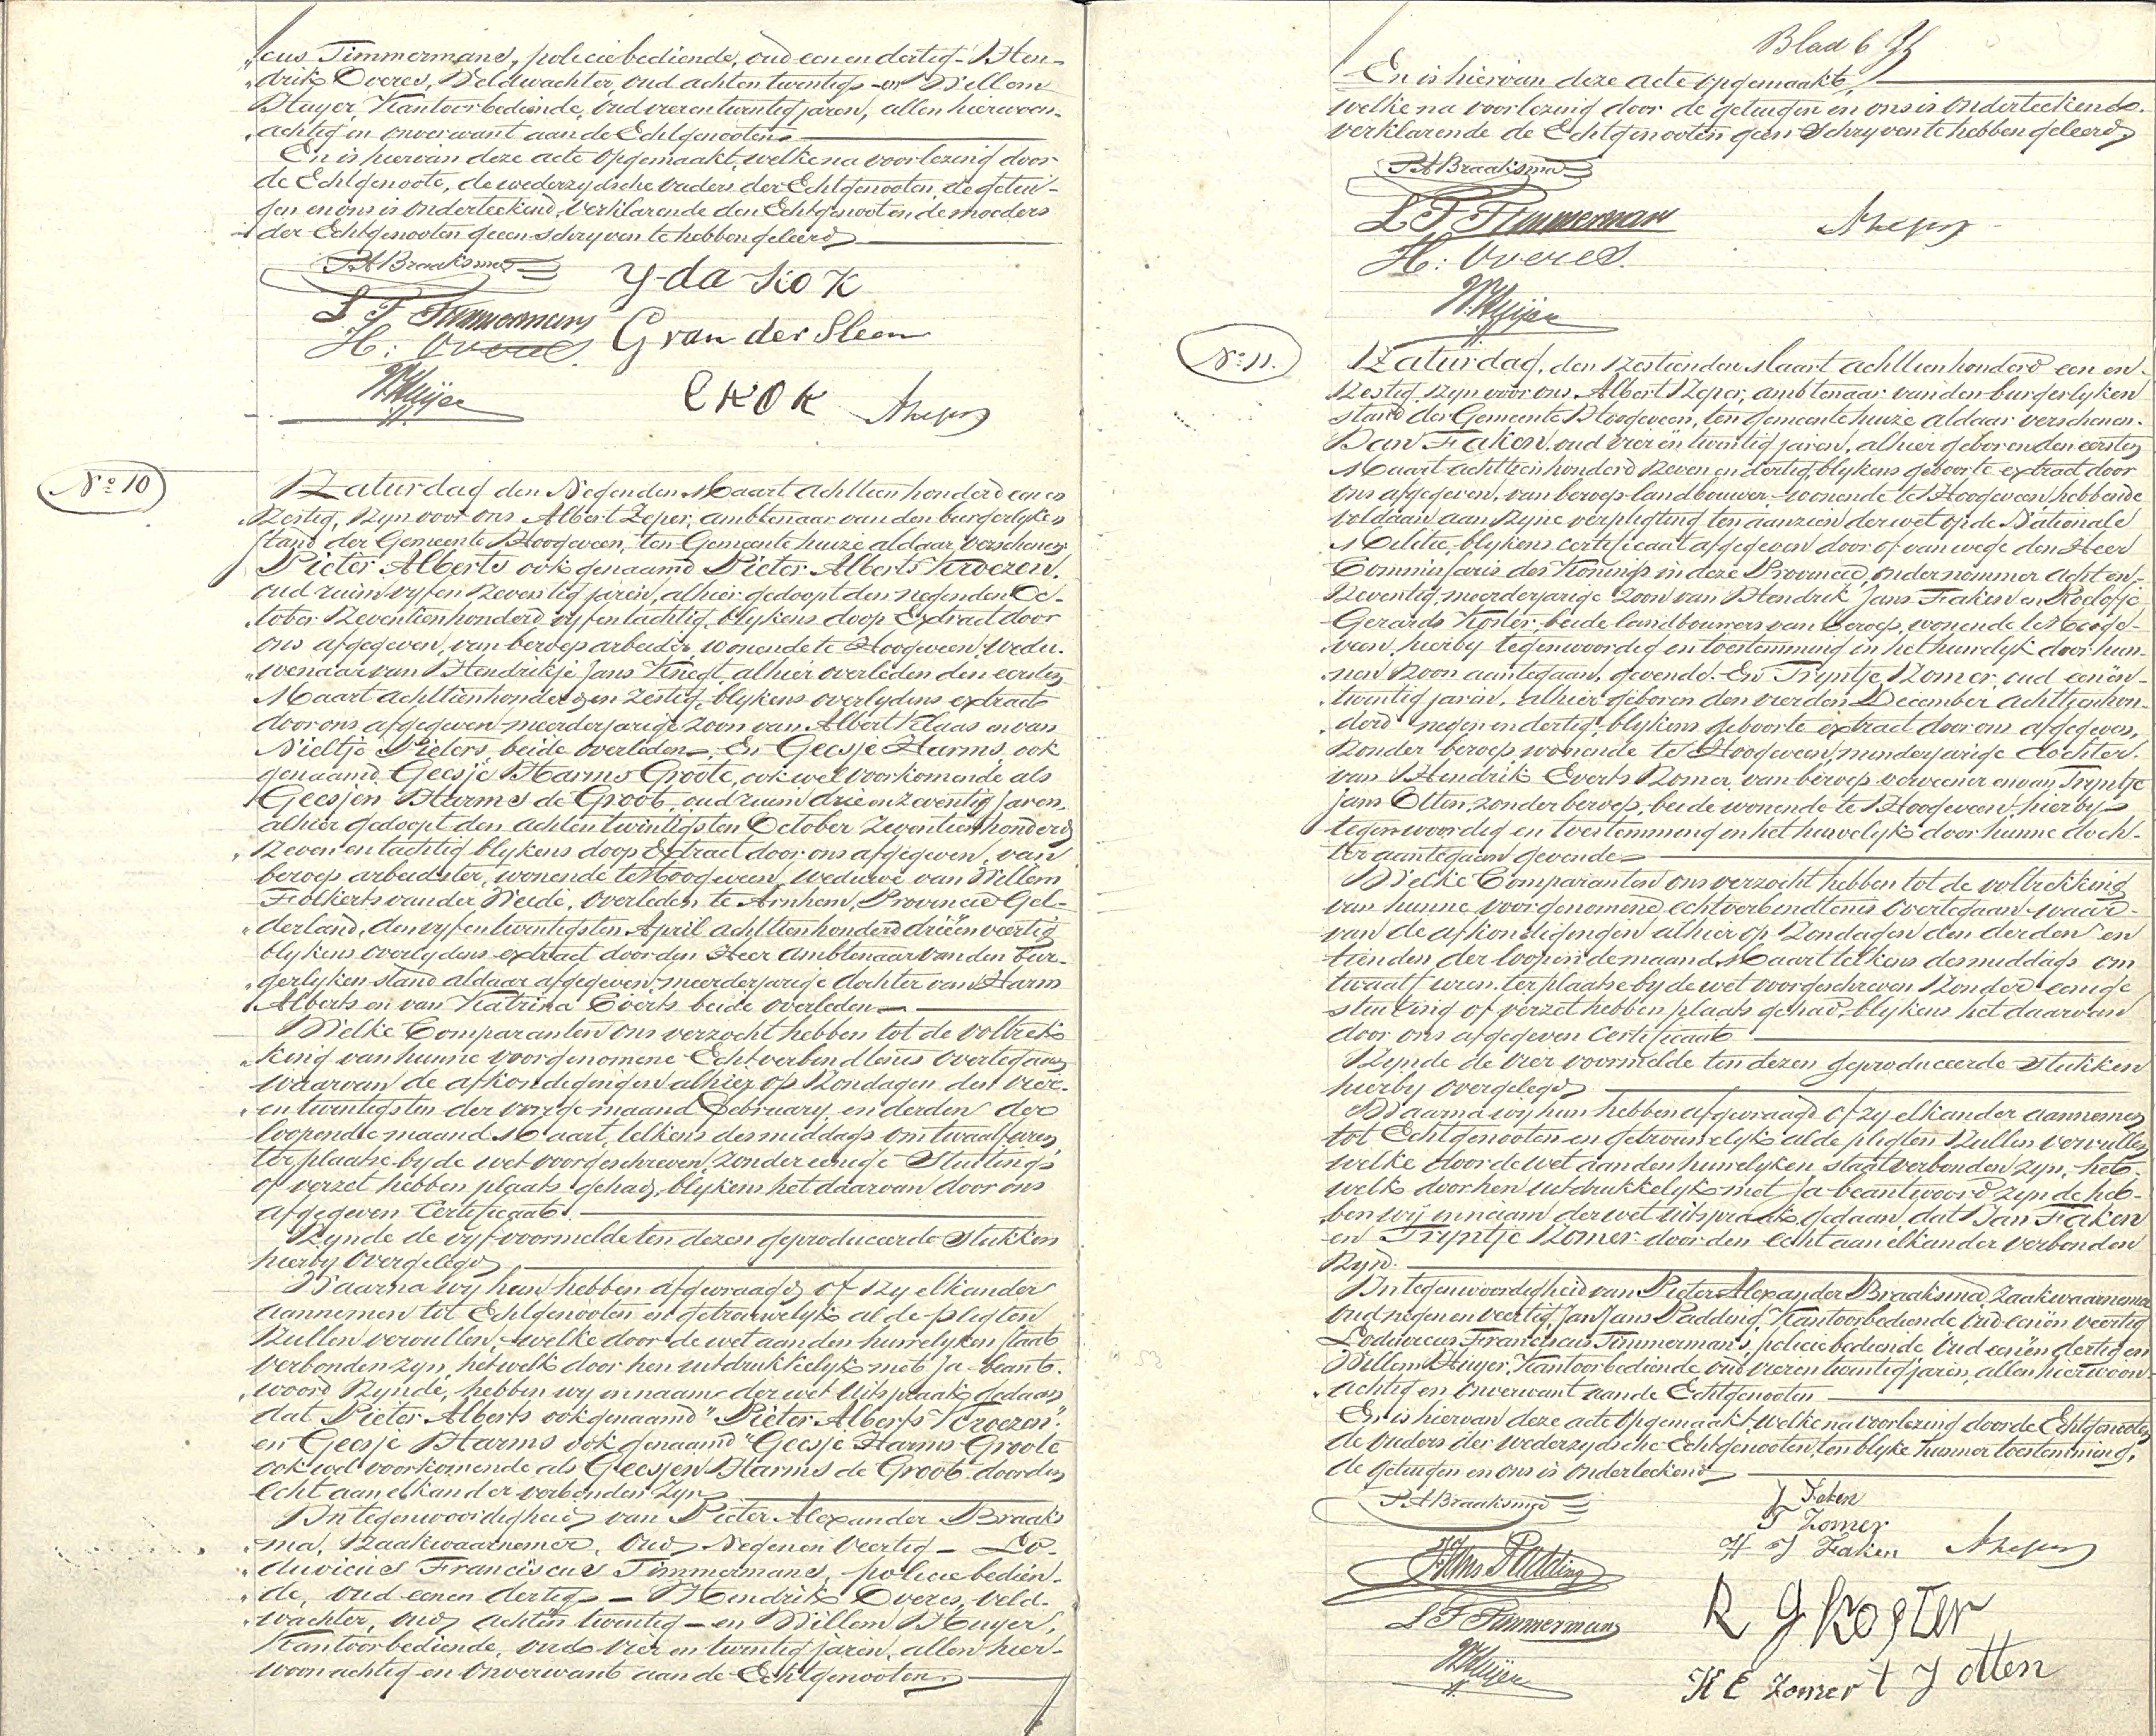 cus Timmermans, policiebediende, oud een en dertig - Hen-
drik Overes, Veldwachter, oud acht en twintig - en Willem
Huyer, Kantoorbediende, oud vier en twintig jaren, allen hier woon-
achtig en onverwant aan de Echtgenooten
En is hiervan deze acte opgemaakt, welke na voorlezing door
de Echtgenoote, de wederzydsche vaders der Echtgenooten, de getui-
gen en ons is onderteekend, verklarende den Echtgenoot en de moeders
der Echtgenooten geen schryven te hebben geleerd
PABraaksma
Y-da Kok
L F Timmermans
G van der Sleen
H: Overes
WHuijer
E KOK
AZeper
No 10
Zaturdag den Negenden Maart achttien honderd een en
zestig, zyn voor ons Albert Zeper, ambtenaar van den burgerlyken
stand der Gemeente Hoogeveen, ten Gemeentehuize aldaar verschenen
Pieter Alberts ook genaamd Pieter Alberts Kroezen,
oud ruim vyf en zeventig jaren, alhier gedoopt den negenden Oc-
tober zeventienhonderd vyf en tachtig, blykens doop Extract door
ons afgegeven, van beroep arbeider, wonende te Hoogeveen, wedu-
wenaar van Hendrikje Jans Knegt, alhier overleden den eersten
Maart achttienhonderd en zestig, blykens overlydens extract
door ons afgegeven meerderjarige zoon van Albert Klaas en van
Nieltje Pieters beide overleden, En Geesje Harms, ook
genaamd Geesje Harms Groote, ook wel voorkomende als
Geesjen Harms de Groot, oud ruim drie en zeventig jaren,
alhier gedoopt den achten twintigsten October zeventien honderd
zeven en tachtig blykens doop Extract door ons afgegeven, van
beroep arbeidster, wonende te Hoogeveen, weduwe van Willem
Folkerts van der Weide, overleden te Arnhem, Provincie Gel-
derland, den vyf en twintigsten April achttienhonderd drieën veertig
blykens overlydens extract door den Heer ambtenaar van den bur-
gerlyken stand aldaar afgegeven, meerderjarige dochter van Harm
Alberts en van Katrina Everts beide overleden
Welke Comparanten ons verzocht hebben tot de voltrek-
king van hunne voorgenomene Echtverbindtenis overtegaan
waarvan de afkondigingen alhier op Zondagen den vier-
en twintigsten der vorige maand February, en derden der
loopende maand Maart, telkens des middags om twaalf uren
ter plaatse by de wet voorgeschreven, zonder eenige Stuiting
of verzet hebben plaats gehad, blykens het daarvan door ons
afgegeven Certificaat.
Zynde de vyf voormelde ten dezen geproduceerde Stukken
hierby overgelegd
Waarna wy hun hebben afgevraagd of zy elkander
aannemen tot Echtgenooten en getrouwelyk al de pligten
zullen vervullen, welke door de wet aan den huwelyken staat
verbonden zyn, het welk door hen uitdrukkelyk met Ja beant-
woord zynde, hebben wy in naam der wet Uitspraak gedaan
dat Pieter Alberts ook genaamd "Pieter Alberts Kroezen"
en Geesje Harms ook genaamd "Geesje Harms Groote
ook wel voorkomende als Geesjen Harms de Groot door den
echt aan elkander verbonden zyn
In tegenwoordigheid van Pieter Alexander Braaks-
ma, Zaakwaarnemer, oud Negen en Veertig - Lo-
duvicus Franciscus Timmermans, policie bedien-
de, oud een en dertig - Hendrik Overes, veld-
wachter, oud achtën twintig - en Willem Huyer,
Kantoorbediende, oud vier en twintig jaren, allen hier-
woonachtig en onverwant aan de Echtgenooten.
Blad 6
En is hiervan deze acte opgemaakt,
welke na voorlezing door de getuigen en ons is onderteekend.
verklarende de Echtgenooten geen Schryven te hebben geleerd
PABraaksma
L F Timmermans
AZeper
H: Overes.
WHuijer
No 11.
Zaturdag, den Zestienden Maart achttienhonderd een en
zestig, zyn voor ons Albert Zeper, ambtenaar van den burgerlyken
stand der Gemeente Hoogeveen, ten gemeentehuize aldaar verschenen.
Jan Faken, oud vier ën twintig jaren, alhier geboren den eersten
Maart achttienhonderd zeven en dertig, blykens geboorte extract door
ons afgegeven, van beroep landbouwer, wonende te Hoogeveen, hebbende
voldaan aan zyne verpligting ten aanzien der wet op de Nationale
Militie, blykens certificaat afgegeven door of van wege den Heer
Commissaris des Konings in deze Provincie, onder nommer acht en
zeventig, meerderjarige zoon van Hendrik Jans Faken en Roelofje
Gerards Koster, beide landbouwers van beroep, wonende te Hooge-
veen, hierby tegenwoordig en toestemming in het huwelyk door hun-
nen zoon aantegaan, gevende. En Tryntje Zomer, oud eenën-
twintig jaren, alhier geboren den vierden December achttienhon-
derd negen en dertig, blykens geboorte extract door ons afgegeven,
zonder beroep, wonende te Hoogeveen, minderjarige dochter
van Hendrik Everts Zomer, van beroep verveener en van Tryntje
Jans Otten, zonder beroep, beide wonende te Hoogeveen, hierby
tegenwoordig en toestemming in het huwelyk door hunne doch-
ter aantegaan gevende
Welke Comparanten ons verzocht hebben tot de voltrekking
van hunne voorgenomene echtverbindtenis overtegaan waar-
van de afkondigingen alhier op Zondagen den derden en
tienden der loopende maand Maart telkens des middags om
twaalf uren, ter plaatse by de wet voorgeschreven Zonder eenige
stuiting of verzet hebben plaats gehad, blykens het daarvan
door ons afgegeven Certificaat
Zynde de vier voormelde ten dezen geproduceerde Stukken
hierby overgelegd
Waarna wij hun hebben afgevraagd of zy elkander aannemen
tot Echtgenooten en getrouwelyk al de pligten zullen vervullen
welke door de wet aan den huwelyken staat verbonden zyn, het-
welk door hen uitdrukkelyk met Ja beantwoord zynde heb-
ben wij in naam der wet uitspraak gedaan, dat Jan Faken
en Tryntje Zomer door den echt aan elkander verbonden
zyn.
In tegenwoordigheid van Pieter Alexander Braaksma, Zaakwaarnemer
oud negen en veertig, Jan Jans Padding, Kantoorbediende oud eenën veertig
Loduvicus Franciscus Timmermans, policie bediende, oud eenën dertig en
Willem Huyer, Kantoorbediende oud vier en twintig jaren, allen hier woon-
achtig en onverwant aan de Echtgenooten
En is hiervan deze acte opgemaakt, welke na voorlezing door de Echtgenooten
de ouders der wederzydsche Echtgenooten, ten blyke hunner toestemming,
de getuigen en ons is onderteekend
PABraaksma
J Faken
T Zomer
H J Faken
AZeper
J Jans Padding
R G Koster
L F Timmermans
WHuijer
H E Zomer
t J otten